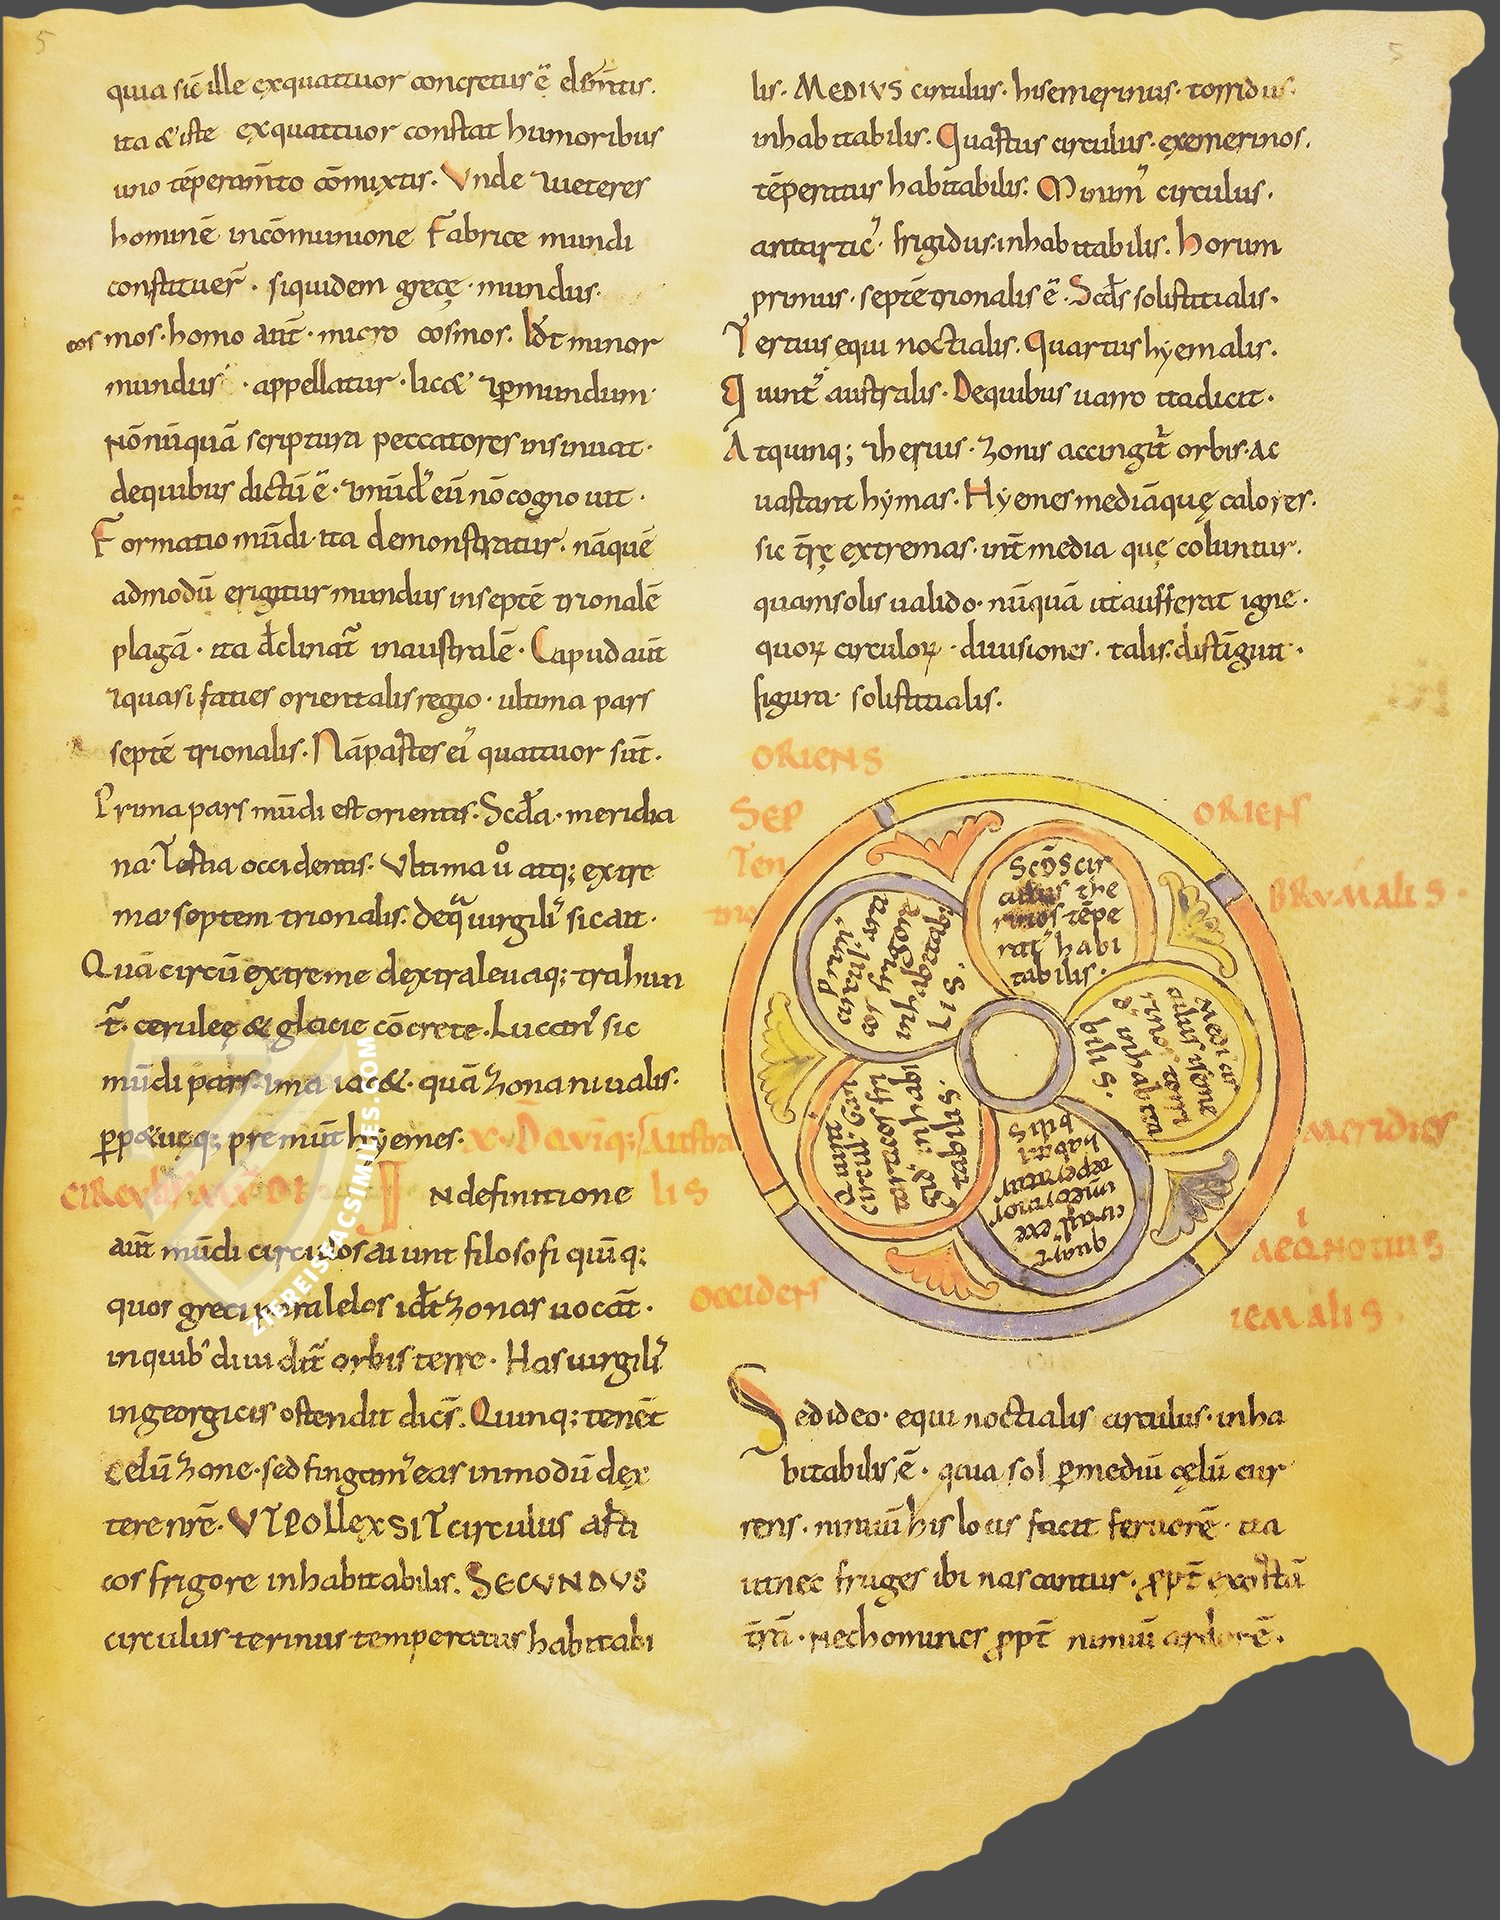 5
quia sic̄ ille exquattuor concretus ē̈ elem̄tis.
ita & iste exquattuor constat humoribus
uno tēperam̄to cōmixtis. Vnde ueteres
hominē incōmunione Fabrice mundi
constituer̄. siquidem grece mundus.
cosmos. homo aūt. micro cosmos. id̄t minor
mundus. appellatur. lic& ip̄mundum
Nōnūquā scriptura peccatores insinuat.
dequibus dictū ē̈. mūd' eū nō cognouit.
Formatio mūdi. ita demonstratur. nāquē
admodū erigitur mundus inseptē trionalē
plagā. ita declinat̄ inaustralē. Capud aūt
& quasi faties orientalis regio. ultima pars
septē trionalis. Nā partes ei' quattuor sūt.
Prima pars mūdi est orientis. Scd̄a. meridia
na. Tertia occidentis. Vltima u° atq; extre
ma septem trionalis. deq̄ uirgili' sic ait.
Quā circū extreme dextra leuaq; trahun
t̄. ceruleę & glacie cōcrete. Lucan' sic
mūdi pars ima iac&. quā zona niualis.
pp̄&ueq; premūt hyemes. X. De quīq;
circulis mūdi. IN definitione
aūt mūdi circulos aiunt filosofi quīq;
quos greci paralelos id̄t zonas uocāt.
in quib' diuidit̄ orbis terre. Has uirgili'
in georgicis ostendit dic̄s. Quinq; tenēt
celū zone. sed fingam' eas in modū dex
tere nr̄ē. VT POLLEX SIT circulus arti
cos frigore inhabitabilis. SECVNDVS
circulus terinus temperatus habitabi
5
lis. MEDIVS circulus. hisemerinus. torridus.
inhabitabilis. Quartus circulus. exemerinos.
tēperatus habitabilis. Minim' circulus.
antartic'. frigidus. inhabitabilis. Horum
primus. septētrionalis ē̈. Scd̄s solistitialis.
Tertius equi noctialis. Quartus hyemalis.
Quint' australis. De quibus uarro ita dicit.
At quinq; &herius. zonis accingit̄ orbis. Ac
uastant hymas. Hyemes mediāquę calores.
sic t̄rę extremas. int̄ media quę coluntur.
quam solis ualido. nūquā ut aufferat igne.
quoꝝ circuloꝝ. diuisiones. talis. distīguit.
figura. solistitialis.
ORIENS
SEP
Ten
trio
ORIENS
BRVMALIS.
Scd̄s cir
culus the
rinos tēpe
rat' habi
tabilis.
Medi' cir
culus iseme
rinos torri
d' inhabita
bilis.
quart'
circul' exe
merinos
tēperat'
habita
bilis
Austra
lis
MERIDIES
AEQ̄NOTIIS
IEMALIS.
OCCIDENS
Sed ideo. equi noctialis circulus. inha
bitabilis ē̄. quia sol p̄ mediū cęlū cur
rens. nimiū his locis facit feruorē. ita
ut nec fruges ibi nascantur. ꝓpt̄ exustā
t̄rā. Nec homines ꝓpt̄ nimiū ardorē.
ZIEREIS FACSIMILES.COM